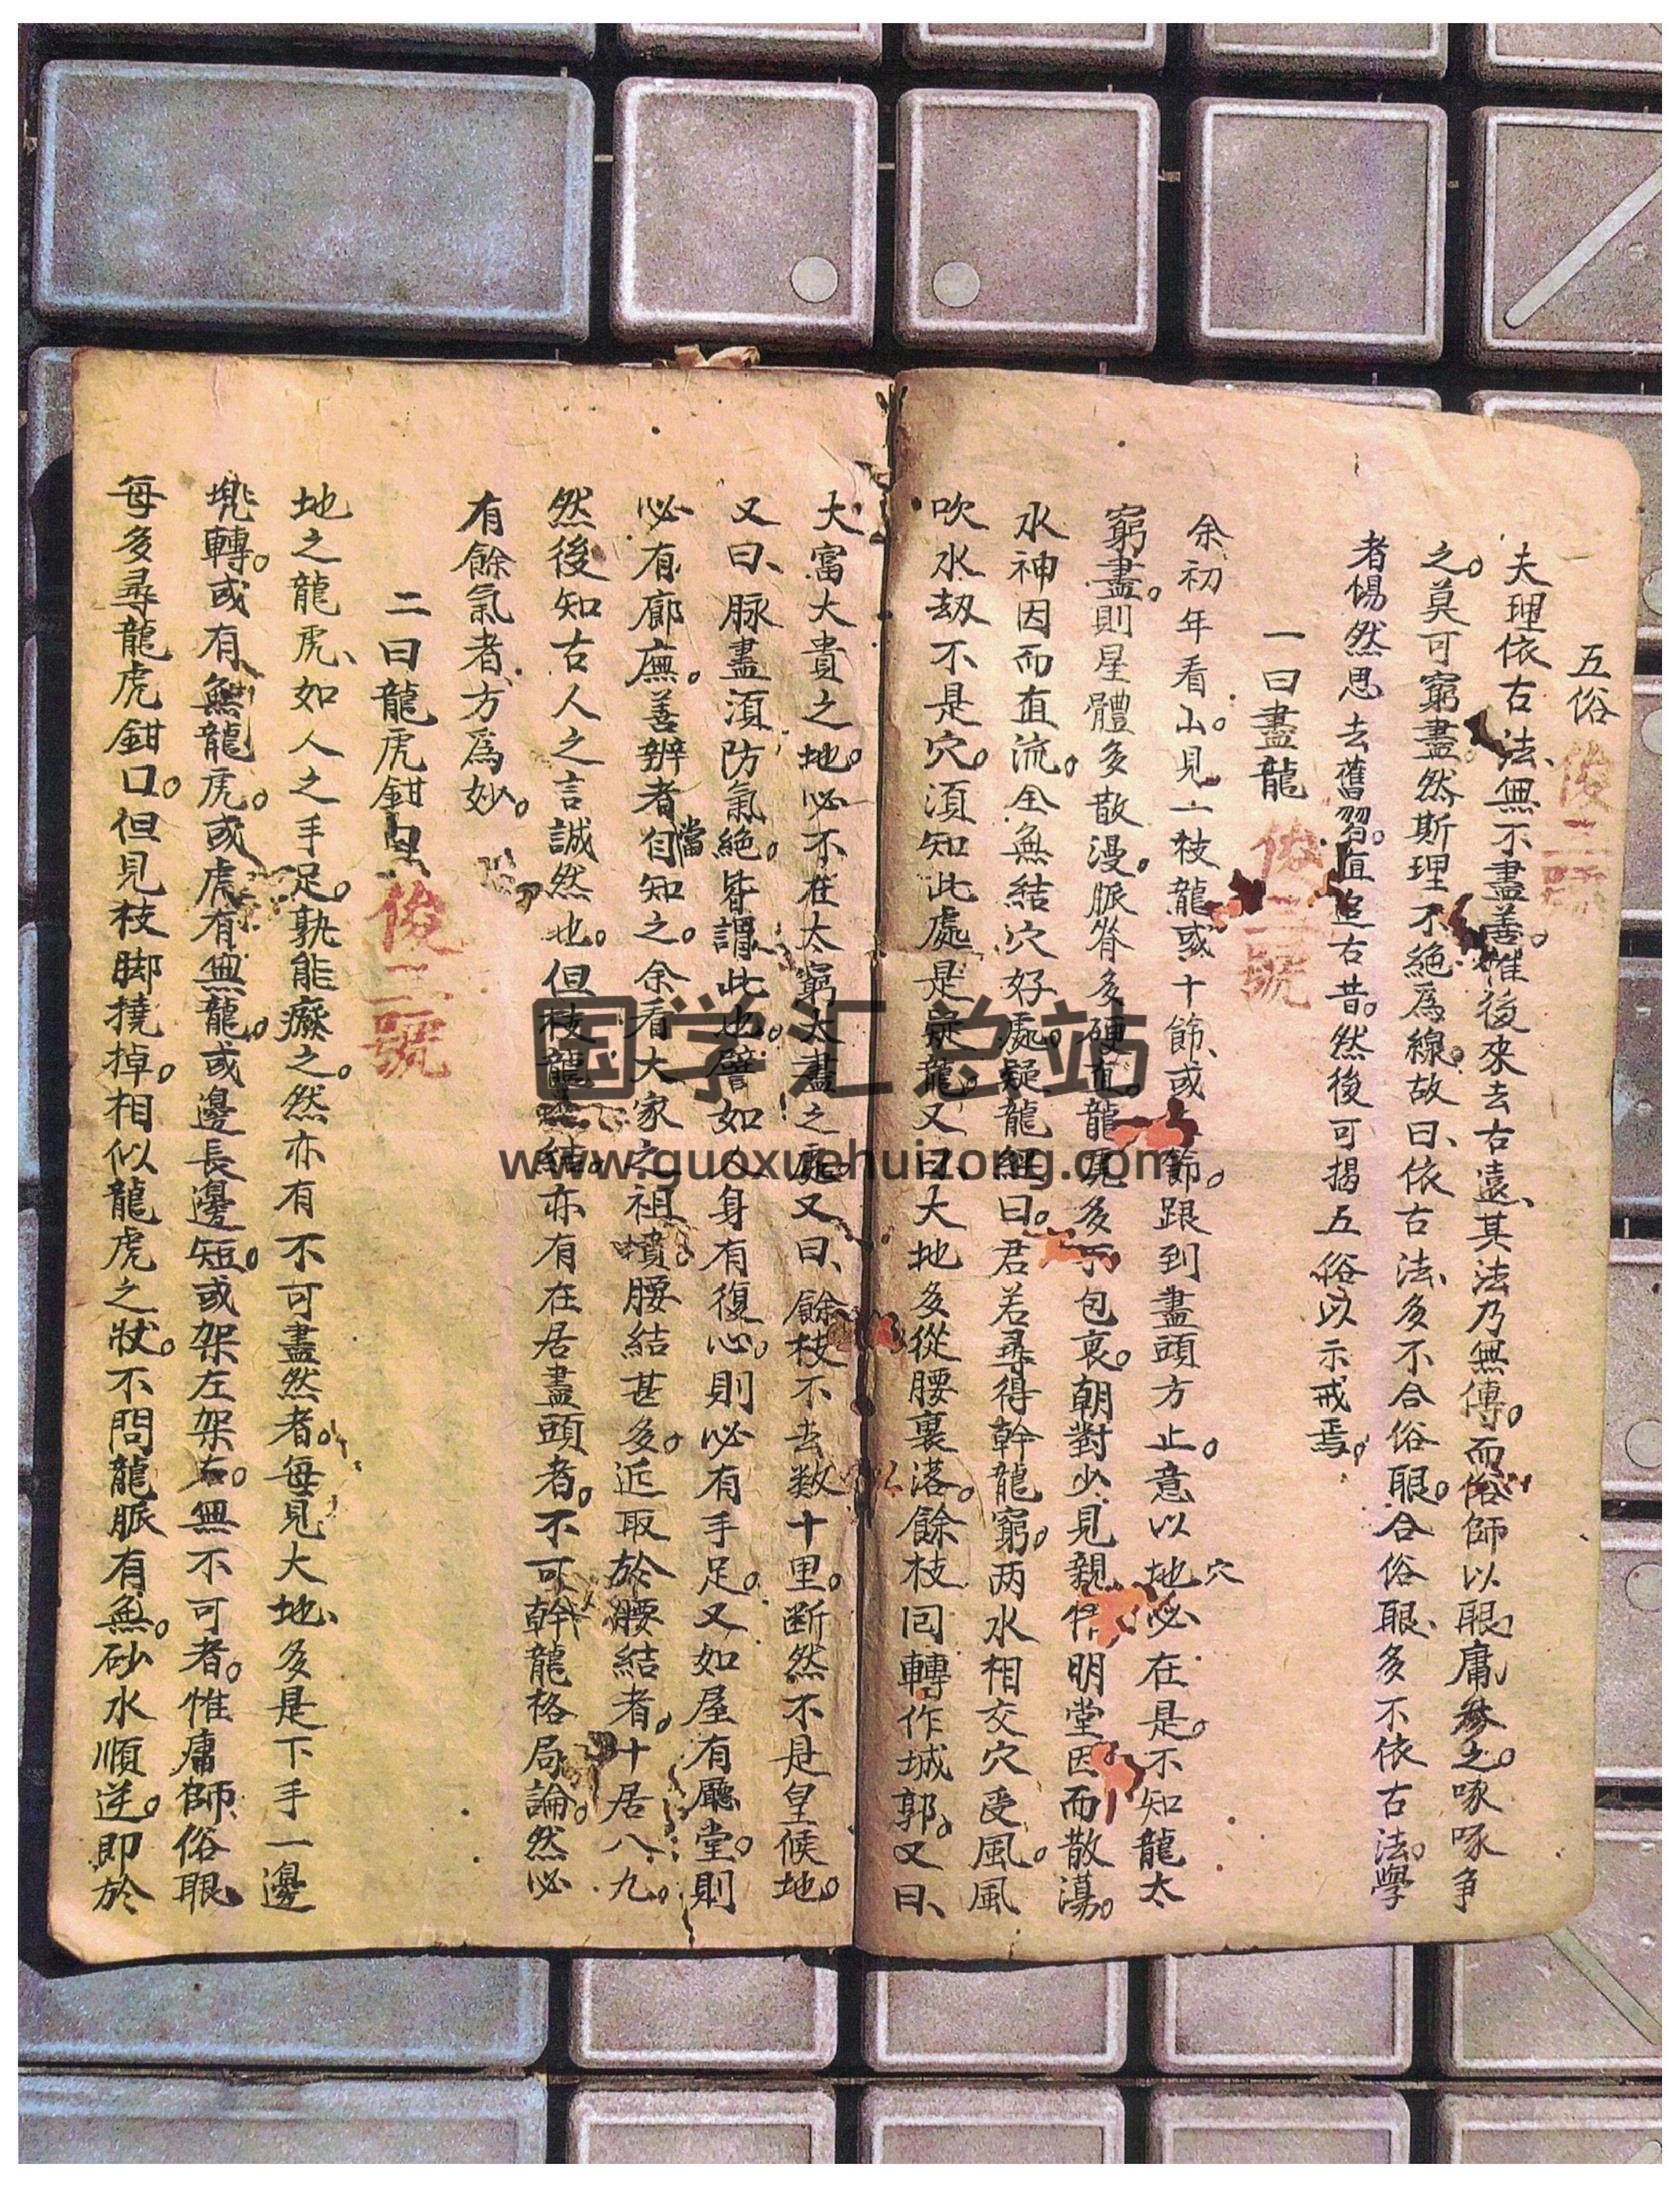 五俗
俊二號
夫理依古法、無不盡善。惟後來去古遠、其法乃無傳。而俗師以眼庸參之。啄啄爭
之。莫可窮盡。然斯理不絕為線。故曰、依古法、多不合俗眼。合俗眼、多不依古法。學
者惕然思去舊習。直追古昔。然後可揭五俗以示戒焉。
一曰盡龍
俊二號
余初年看山。見一枝龍或十節、或節。跟到盡頭方止。意以地穴必在是。不知龍太
窮盡。則星體多散漫。脈脊多硬直。龍虎多不包裹。朝對少見親明堂因而散蕩。
水神因而直流。全無結穴好處。疑龍經曰。君若尋得幹龍窮。两水相交穴受風。風
吹水刼不是穴。湏知此處是疑龍。又曰、大地多從腰裏落。餘枝囘轉作城郭。又曰、
大富大貴之地。必不在太窮太盡之處。又曰、餘枝不去数十里。断然不是皇候地。
又曰、脉盡湏防氣絕。皆謂此也。譬如人身有復心。則必有手足。又如屋有廳堂。則
必有廊廡。善辨者當自知之。余看大家之祖墳腰結甚多。近取於腰結者。十居八九。
然後知古人之言誠然也。但枝龍結。亦有在居盡頭者。不可幹龍格局論。然必
有餘氣者、方為妙。
二曰龍虎鉗口
俊二號
地之龍虎、如人之手足。孰能癈之。然亦有不可盡然者。每見大地、多是下手一邊
兠轉。或有無龍虎。或虎有無龍。或邊長邊短。或架左架右。無不可者。惟庸師俗眼
每多尋龍虎鉗口。但見枝脚撓掉。相似龍虎之狀。不問龍脈有無。砂水順逆。即於
国学汇总站
www.guoxuehuizong.com